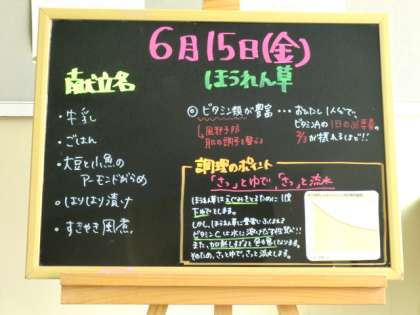 6月15日(金)
献立名
ほうれん草
・牛乳
・ごはん
・大豆と小魚の
アーモンドがらめ
・はりはり漬け
・すきやき風煮
◎ビタミン類が豊富…おひたし1人分で、
ビタミンAの1日の必要量の
2/3が摂れるほど!!
風邪予防
肌の調子を整える
調理のポイント
「さっとゆで、さっと流水」
ほうれん草はえぐみをとるために1度
下ゆでします。
しかし、ほうれん草に豊富にふくまれる
ビタミンCは水に溶けだす性質!!
また、加熱しすぎると色も悪くなります。
そのため、さっとゆで、さっと流水します。